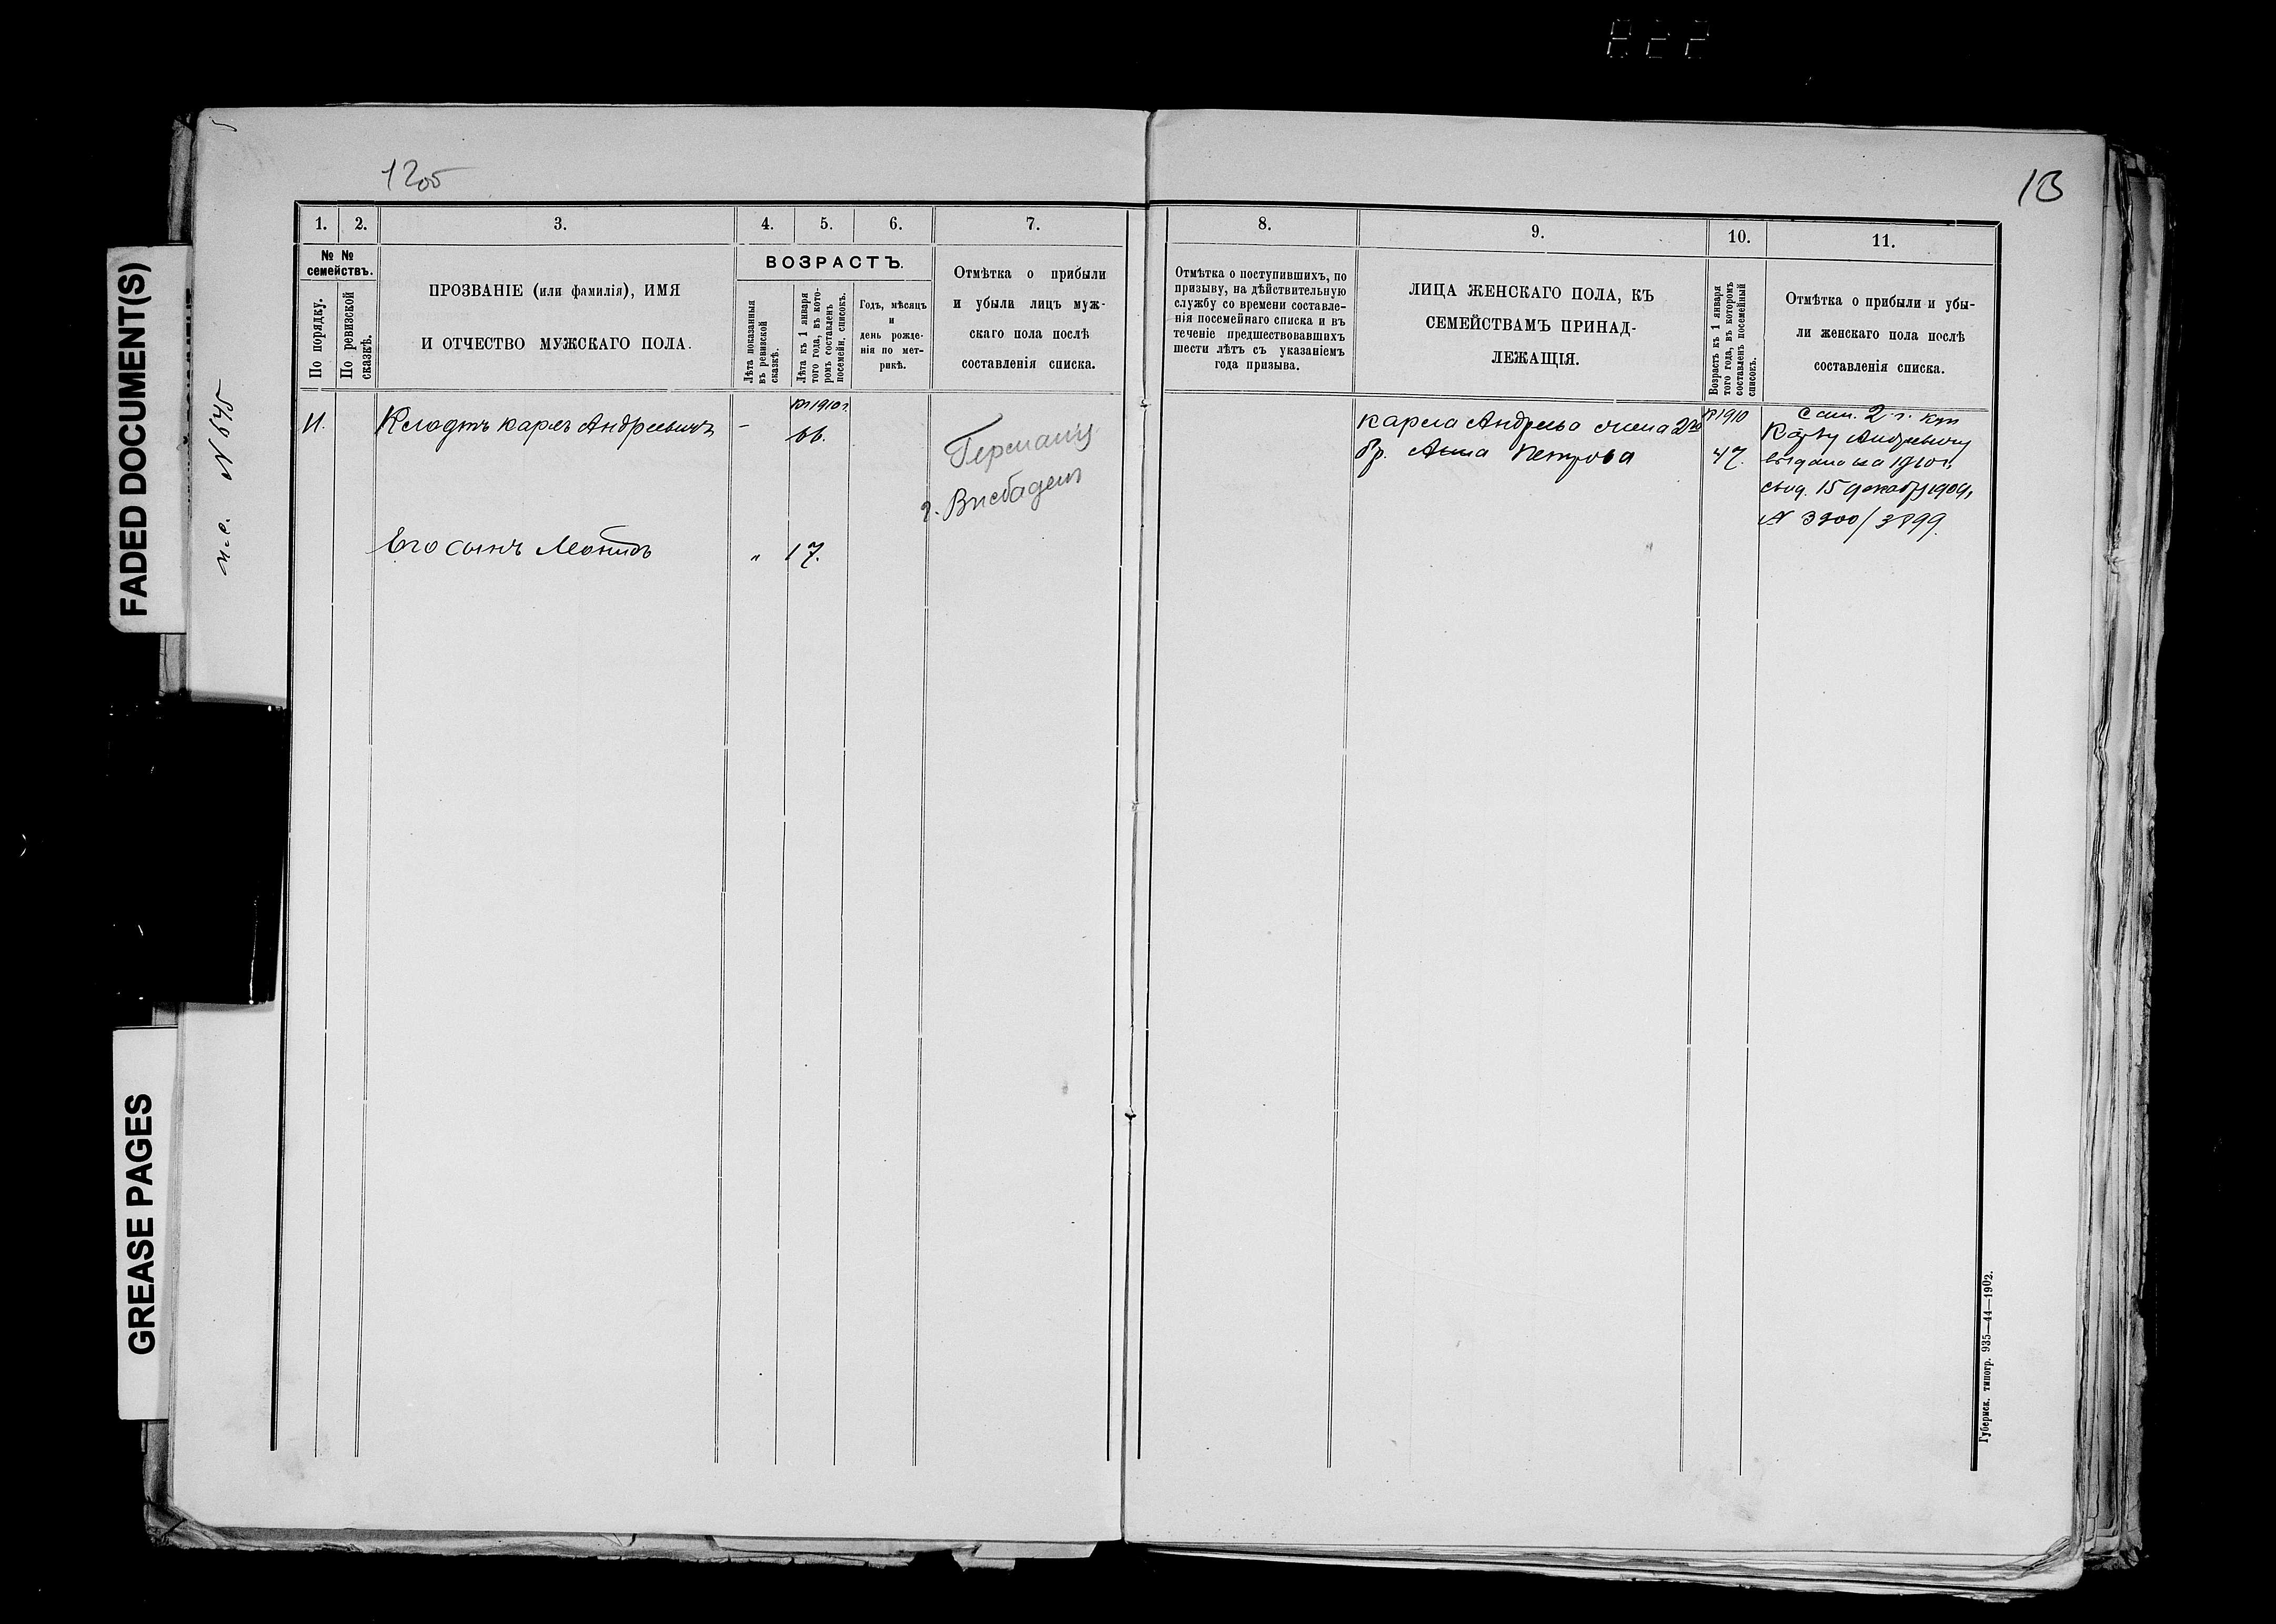 1205
13
FADED DOCUMENT(S)
GREASE PAGES
N 645
1.
2.
3.
4.
5.
6.
7.
№ №
семействъ.
По порядку.
По ревизской
сказкѣ.
ПРОЗВАНІЕ (или фамилія), ИМЯ
И ОТЧЕСТВО МУЖСКАГО ПОЛА.
ВОЗРАСТЪ.
Лѣта показанныя
въ ревизской
сказкѣ.
Лѣта къ 1 января
того года, въ кото-
ромъ составленъ
посемейн. списокъ.
Годъ, мѣсяцъ
и
день рожде-
нія по мет-
рикѣ.
Отмѣтка о прибыли
и убыли лицъ муж-
скаго пола послѣ
составленія списка.
11.
Клодтъ Карлъ Андреевичъ
-
1910 г.
66.
Германія
г. Висбаденъ
Его сынъ Леонидъ
"
17.
8.
9.
10.
11.
Отмѣтка о поступившихъ, по
призыву, на дѣйствительную
службу со времени составле-
нія посемейнаго списка и въ
теченіе предшествовавшихъ
шести лѣтъ съ указаніемъ
года призыва.
ЛИЦА ЖЕНСКАГО ПОЛА, КЪ
СЕМЕЙСТВАМЪ ПРИНАД-
ЛЕЖАЩІЯ.
Возрастъ къ 1 января
того года, въ которомъ
составленъ посемейный
списокъ.
Отмѣтка о прибыли и убы-
ли женскаго пола послѣ
составленія списка.
Карла Андреева жена 2го
бр. Анна Петрова
1910
47.
2 г.
Карлу Андреевичу
выдана на 1910 г.
свид. 15 декабр 1909 г.
N 3900/3899.
Губернск. типогр. 935—44—1902.